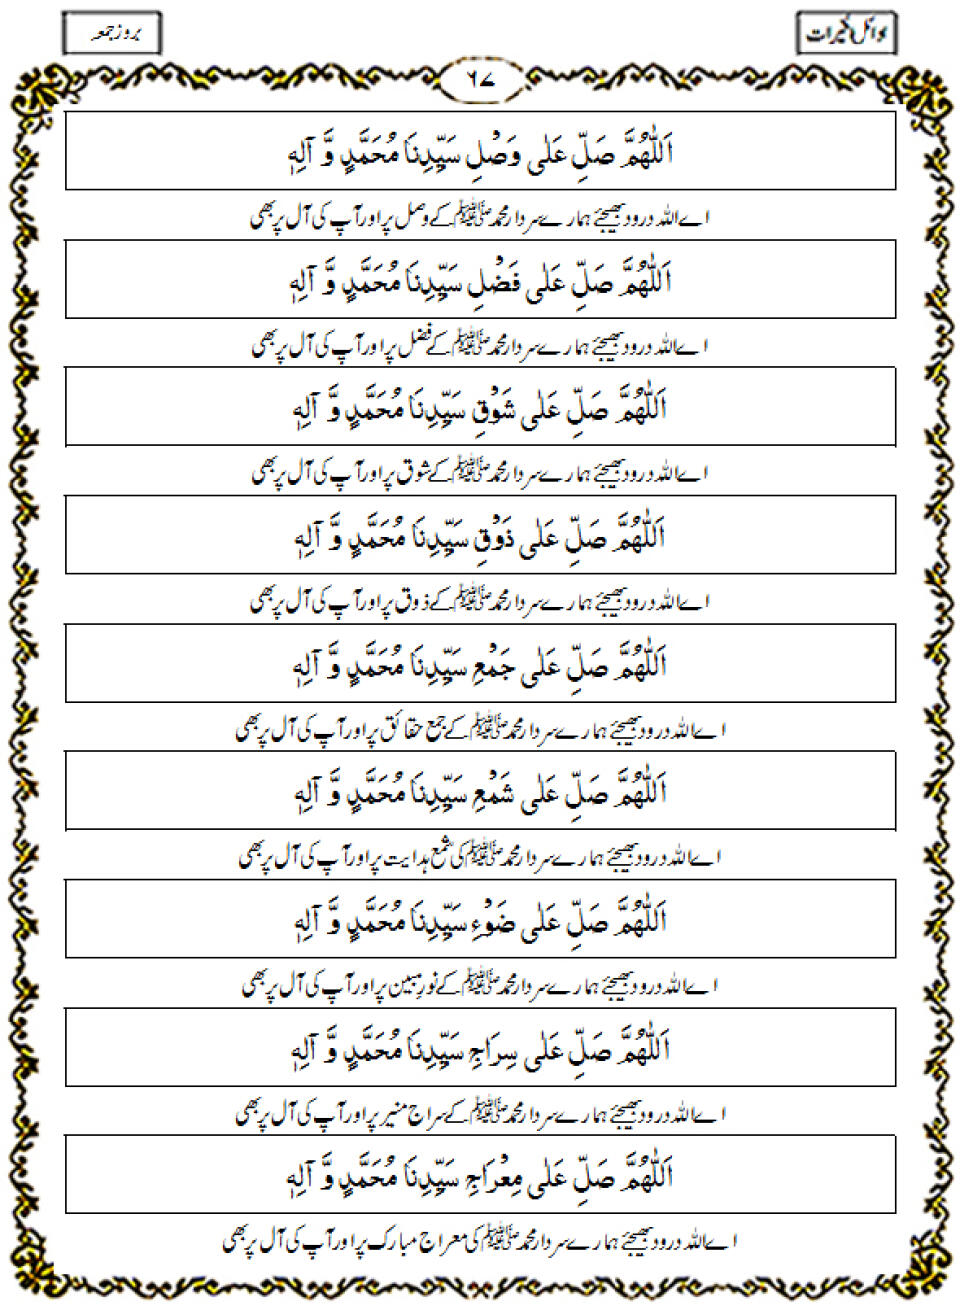 بروز جمعہ
۶۷
اَللّٰهُمَّ صَلِّ عَلٰی وَصْلِ سَیِّدِنَا مُحَمَّدٍ وَّ آلِهٖ
اے اللہ درود بھیجئے ہمارے سردار محمد ﷺ کے وصل پر اور آپ کی آل پر بھی
اَللّٰهُمَّ صَلِّ عَلٰی فَضْلِ سَیِّدِنَا مُحَمَّدٍ وَّ آلِهٖ
اے اللہ درود بھیجئے ہمارے سردار محمد ﷺ کے فضل پر اور آپ کی آل پر بھی
اَللّٰهُمَّ صَلِّ عَلٰی شَوْقِ سَیِّدِنَا مُحَمَّدٍ وَّ آلِهٖ
اے اللہ درود بھیجئے ہمارے سردار محمد ﷺ کے شوق پر اور آپ کی آل پر بھی
اَللّٰهُمَّ صَلِّ عَلٰی ذَوْقِ سَیِّدِنَا مُحَمَّدٍ وَّ آلِهٖ
اے اللہ درود بھیجئے ہمارے سردار محمد ﷺ کے ذوق پر اور آپ کی آل پر بھی
اَللّٰهُمَّ صَلِّ عَلٰی جَمْعِ سَیِّدِنَا مُحَمَّدٍ وَّ آلِهٖ
اے اللہ درود بھیجئے ہمارے سردار محمد ﷺ کے جمع حقائق پر اور آپ کی آل پر بھی
اَللّٰهُمَّ صَلِّ عَلٰی شَمْعِ سَیِّدِنَا مُحَمَّدٍ وَّ آلِهٖ
اے اللہ درود بھیجئے ہمارے سردار محمد ﷺ کی شمع ہدایت پر اور آپ کی آل پر بھی
اَللّٰهُمَّ صَلِّ عَلٰی ضَوْءِ سَیِّدِنَا مُحَمَّدٍ وَّ آلِهٖ
اے اللہ درود بھیجئے ہمارے سردار محمد ﷺ کے نور مبین پر اور آپ کی آل پر بھی
اَللّٰهُمَّ صَلِّ عَلٰی سِرَاجِ سَیِّدِنَا مُحَمَّدٍ وَّ آلِهٖ
اے اللہ درود بھیجئے ہمارے سردار محمد ﷺ کے سراج منیر پر اور آپ کی آل پر بھی
اَللّٰهُمَّ صَلِّ عَلٰی مِعْرَاجِ سَیِّدِنَا مُحَمَّدٍ وَّ آلِهٖ
اے اللہ درود بھیجئے ہمارے سردار محمد ﷺ کی معراج مبارک پر اور آپ کی آل پر بھی